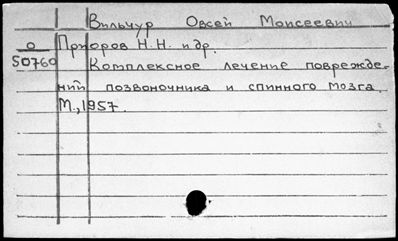 Вильчур Овсей Моисеевич
О Приоров Н.Н. и др.
50760 Комплексное лечение поврежде-
ний позвоночника и спинного мозга.
М., 1957.